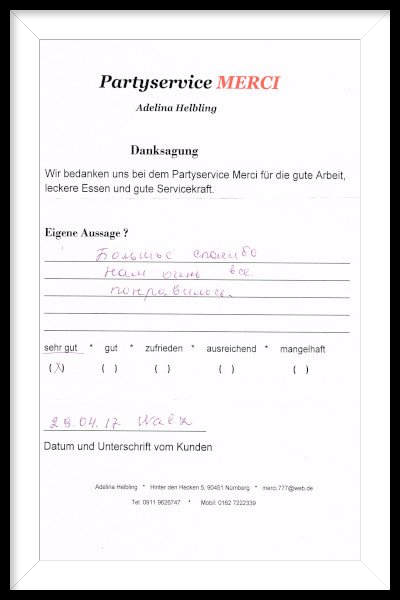 Partyservice MERCI
Adelina Helbling
Danksagung
Wir bedanken uns bei dem Partyservice Merci für die gute Arbeit,
leckere Essen und gute Servicekraft.
Eigene Aussage ?
Большое спасибо
Нам очень все
понравилось.
sehr gut * gut * zufrieden * ausreichend * mangelhaft
(X) ( ) ( ) ( ) ( )
29.04.17 Walz
Datum und Unterschrift vom Kunden
Adelina Helbling * Hinter den Hecken 5, 90451 Nürnberg * merci.777@web.de
Tel: 0911 9626747 * Mobil: 0162 7222339